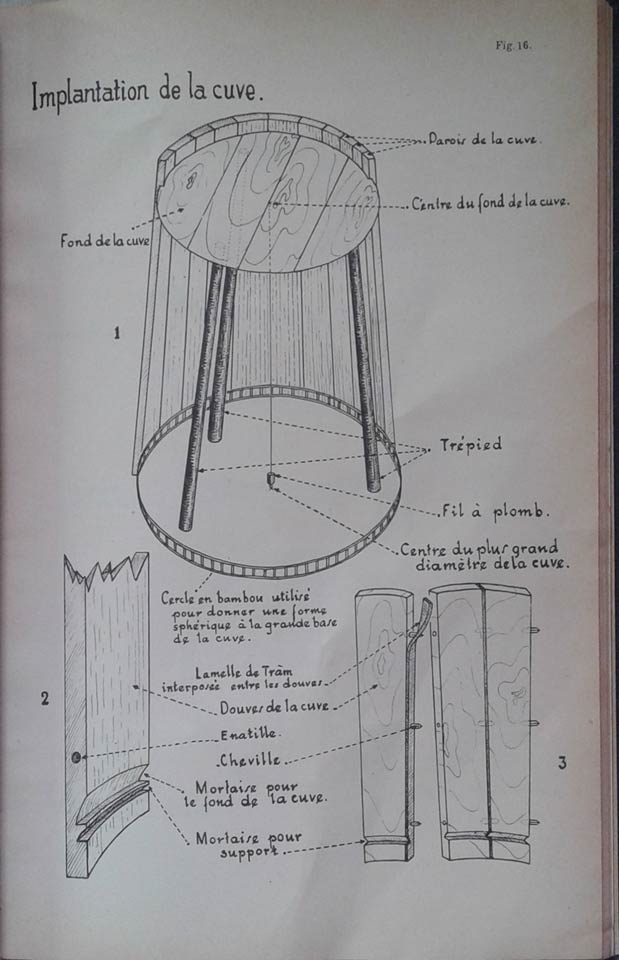 Fig. 16.
Implantation de la cuve.
Parois de la cuve.
Centre du fond de la cuve.
Fond de la cuve
1
Trépied
Fil à plomb.
Centre du plus grand
diamètre de la cuve.
Cercle en bambou utilisé
pour donner une forme
sphérique à la grande base
de la cuve.
Lamelle de Tràm
interposée entre les douves.
2
Douves de la cuve.
Entaille.
Cheville.
3
Mortaise pour
le fond de la cuve.
Mortaise pour
support.